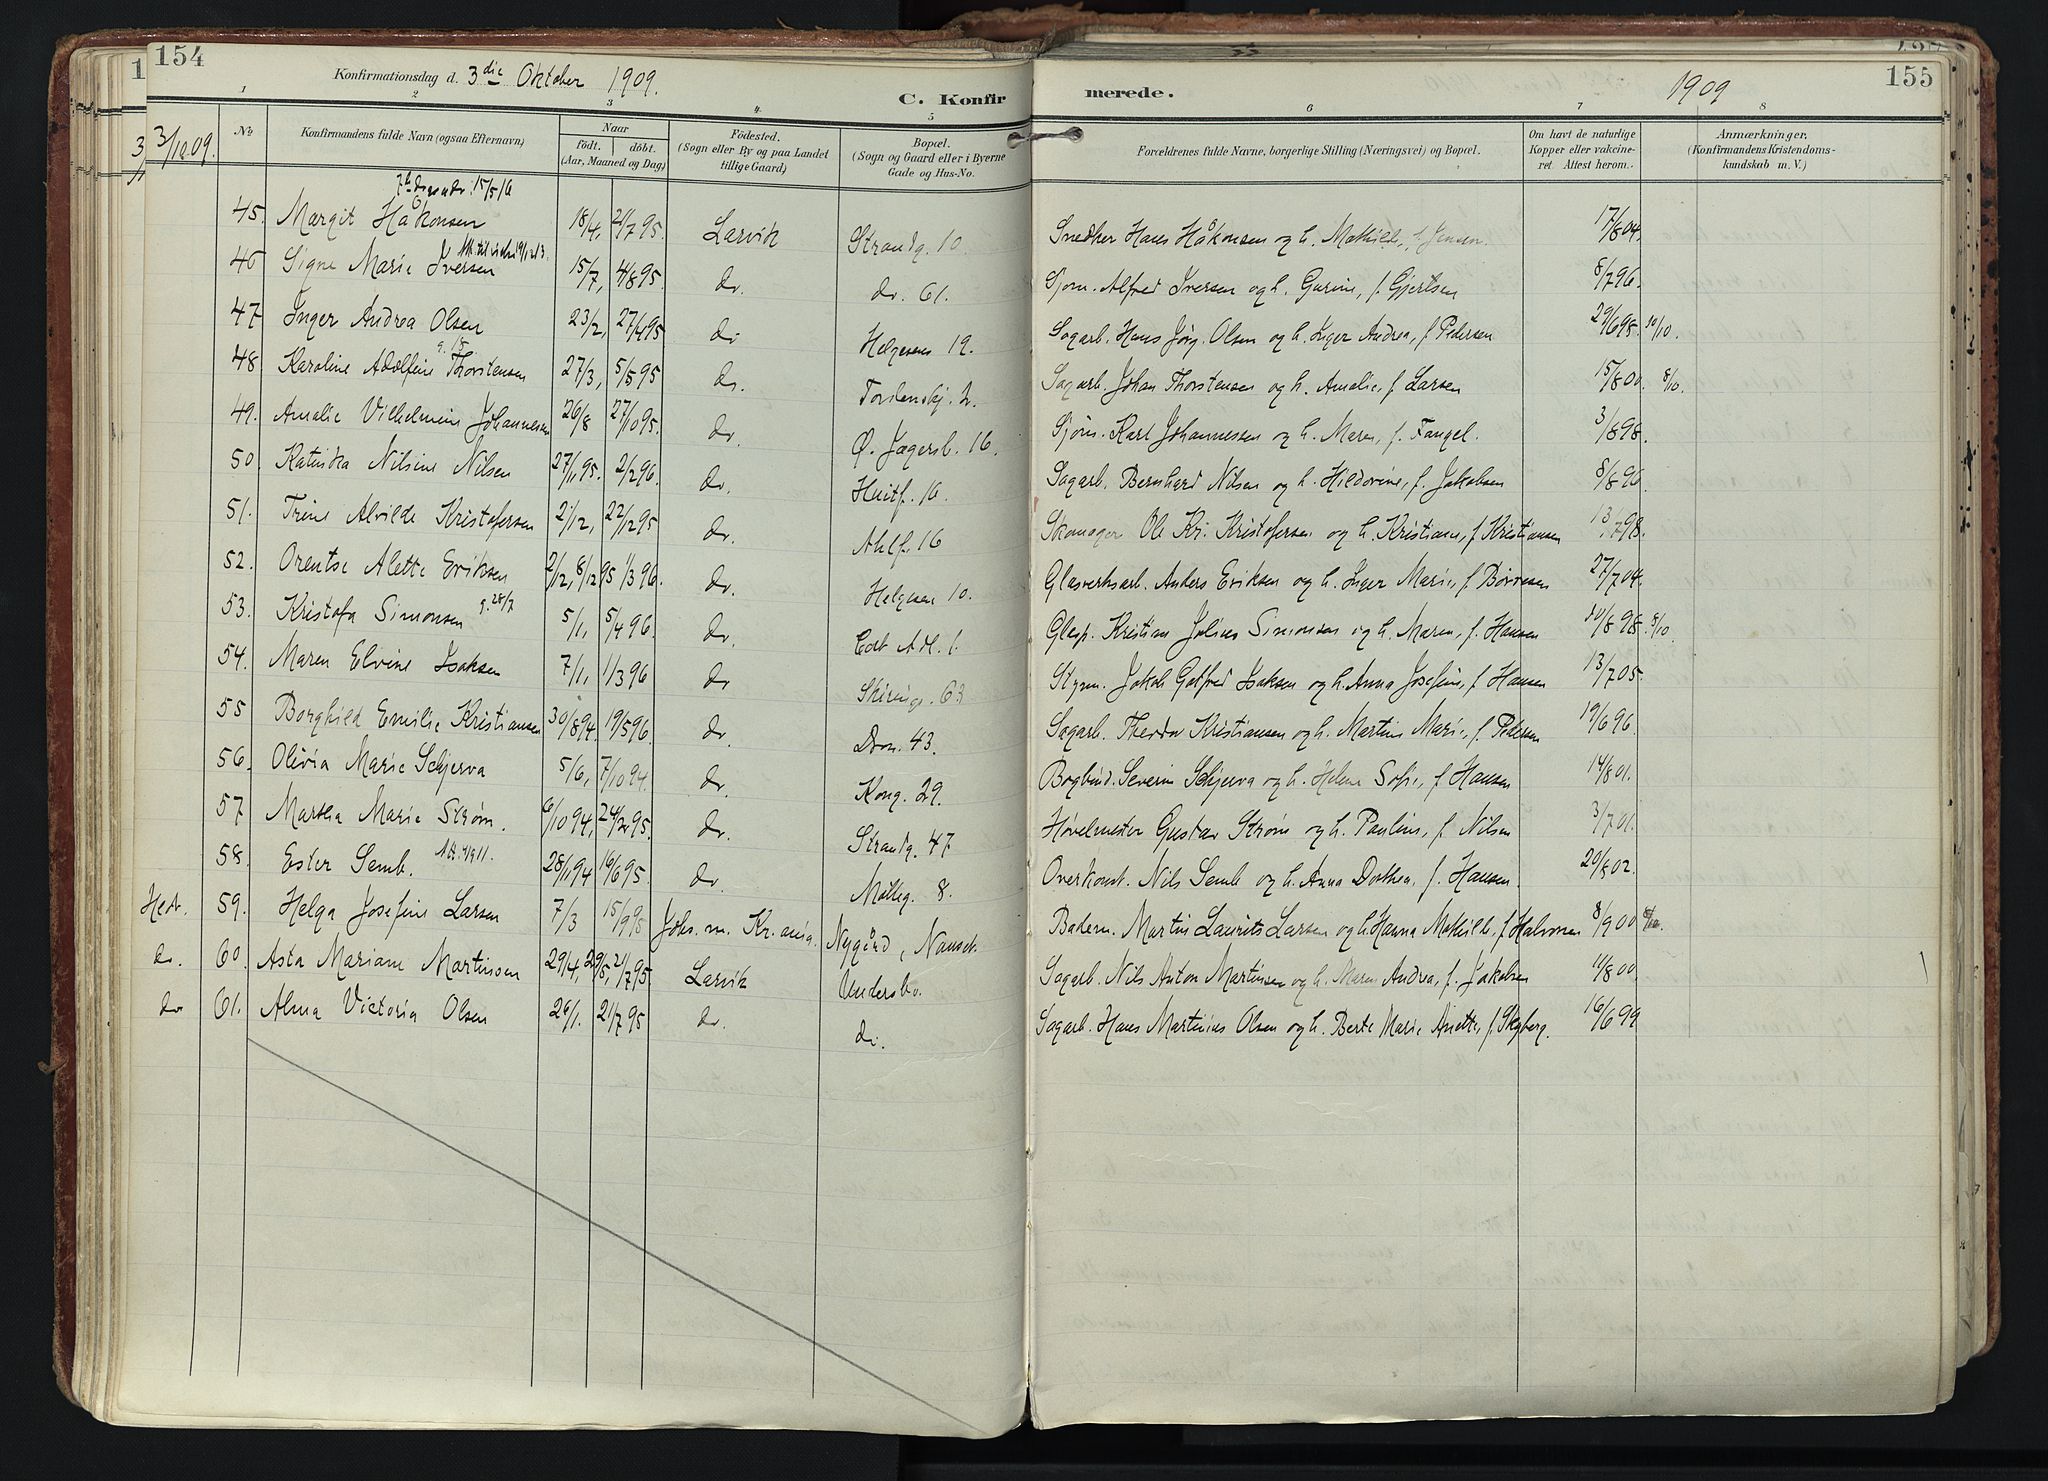 154
Konfirmationsdag d. 3die Oktober 1909.
C. Konfirmerede.
1909
155
1 2 3 4 5 6 7 8
3/10 09.
No
Konfirmandens fulde Navn (ogsaa Efternavn)
Naar
födt. döbt.
(Aar, Maaned og Dag)
Födested.
(Sogn eller By og paa Landet tillige Gaard)
Bopæl.
(Sogn og Gaard eller i Byerne Gade og Hus-No.
Forældrenes fulde Navne, borgerlige Stilling (Næringsvei) og Bopæl.
Om havt de naturlige Kopper eller vakcineret Attest herom.
Anmærkninger.
(Konfirmandens Kristendomskundskab m. V.)
15/5 16
45. Margit Håkonsen 18/4, 21/7 95. Larvik Strandg. 10 Snedker Hans Håkonsen og h. Mathilde, f. Jensen. 17/8 04.
46 Signe Marie Iversen 15/7, 4/8 95. do. do. 61. Sjøm. Alfred Iversen og h. Gurine, f. Gjertsen 8/7 96.
47 Inger Andrea Olsen 23/2, 27/4 95 do Helgesens 12. Sagarb. Hans Jørg. Olsen og h. Inger Andrea, f. Pedersen 29/6 98. 10/10.
48 Karoline Adolfine Thorstensen 27/3, 5/5 95 do. Tordenskj. 2. Sagarb. Johan Thorstensen og h. Amalie, f. Larsen 15/8 00. 8/10.
49. Amalie Vilhelmine Johannesen 26/8 27/10 95. do. Ø. Jegersb. 16. Sjøm. Karl Johannessen og h. Maren, f. Fangel. 3/8 98.
50. Katinka Nilsine Nilsen 27/11 95. 2/2 96. do. Huitf. 16. Sagarb. Bernhard Nilsen og h. Hildorine, f. Jakobsen 8/8 96.
51. Trine Alvilde Kristofersen 2/12, 22/12 95 do. Ahlf. 16 Skomager Ole Kr. Kristofersen og h. Kristiane, f. Kristiansen 13/7 98.
52. Orentse Alette Eriksen 2/12, 8/12 95 1/3 96. do. Helgesen 10. Glasverksarb. Anders Eriksen og h. Inger Marie, f. Børresen 27/7 04.
53. Kristofa Simonsen g. 28/7 5/1, 5/4 96. do. Glasp. Kristian Julius Simonsen og h. Maren, f. Hansen 10/8 98. 8/10.
54. Maren Elvine Isaksen 7/1, 1/3 96 do Skirings. 63 Styrm. Jakob Gotfred Isaksen og h. Anna Josefine, f. Hansen 13/7 05.
55 Borghild Emilie Kristiansen 30/8 94. 19/5 96. do. Dron. 43. Sagarb. Theodor Kristiansen og h. Martine Marie, f. Pedersen 19/6 96.
56. Olivia Marie Schjerva 5/6, 7/10 94. do. Kong. 29. Bogbind. Severin Schjerva og h. Helene Sofie, f. Hansen 14/8 01.
57 Martha Marie Strøm. 6/10 94, 24/2 95. do. Strandg. 47 Høvelmester Gustav Strøm og h. Pauline, f. Nilsen 3/7 01.
58. Ester Semb. 28/11 94 16/6 95. do. Mølleg. 8. Overkonst. Nils Semb og h. Anna Dorthea, f. Hansen. 20/8 02.
Hedr. 59. Helga Josefine Larsen 7/3 15/9 95 Johs. m. Kr.ania. Nygård, Nanset. Badem. Martin Laurits Larsen og h. Hanna Mathilde, f. Halvorsen 8/9 00
do. 60. Asta Mariane Martinsen 29/4, 29/5, 21/7 95. Larvik Undersbo. Sagarb. Nils Anton Martinsen og h. Maren Andrea, f. Jakobsen 11/8 00.
do 61. Alma Victoria Olsen 26/1. 21/7 95 do. do. Sagarb. Hans Martinius Olsen og h. Berte Marie Anette, f. Skyberg. 16/6 99